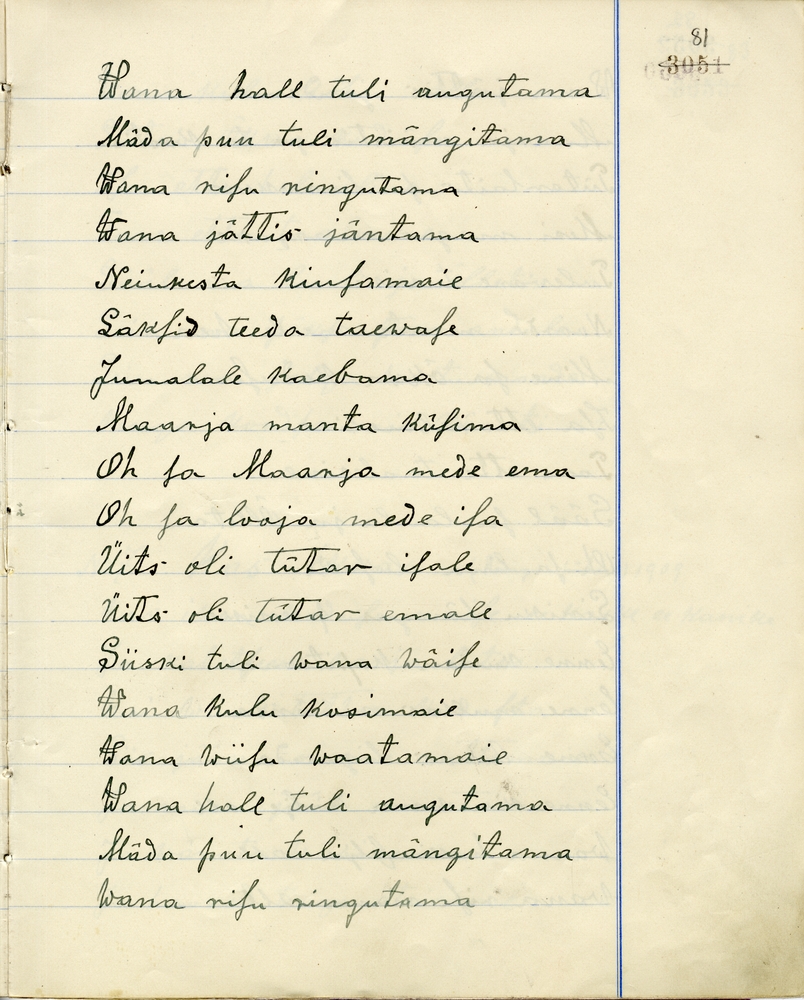 81
3051
Wana hall tuli augutama
Mäda puu tuli mängitama
Wana riſu ringutama
Wana jättis jäntama
Neiukesta kiuſamaie
Läkſid teeda taewaſe
Jumalale kaebama
Maarja manta küſima
Oh ſa Maarja mede ema
Oh ſa looja mede iſa
Üits oli tütar iſale
Üits oli tütar emale
Siiski tuli wana wäiſe
Wana kulu kosimaie
Wana wiiſu waatamaie
Wana hall tuli augutama
Mäda puu tuli mängitama
Wana riſu ringutama